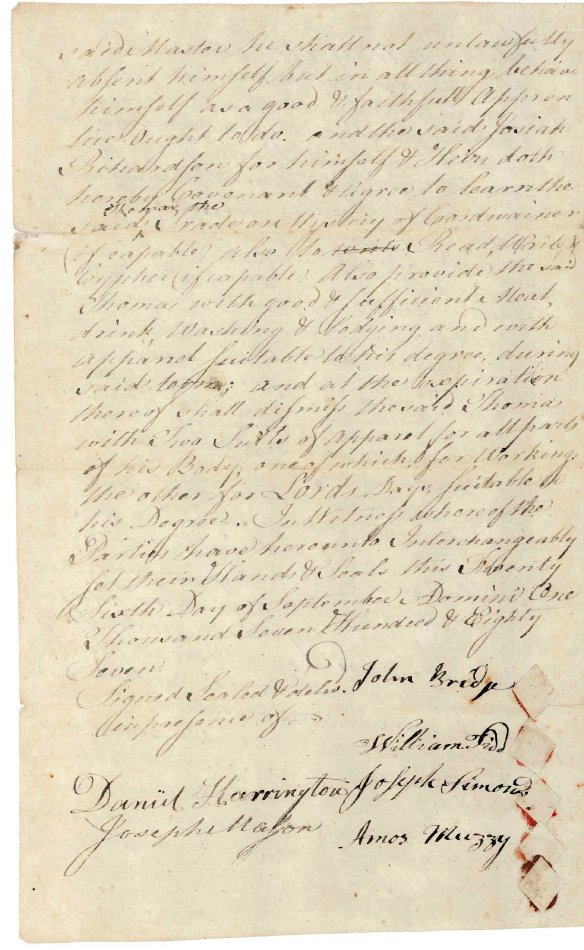 said Master he shall not unlawfully
absent himself but in all thing behave
himself as a good & faithfull Appren
tice ought to do. and the said Josiah
Richardson for himself & Heirs doth
hereby Covenant & Agree to learn the
Thomas the
said Trade or Mystry of Cordwainer
(if capable) also to write Read, Write &
Cypher (if capable) Also provide the said
Thomas with good & sufficient Meat,
drink, Washing & lodging and with
apparel suitable to his degree, during
said term; and at the expiration
thereof shall dismiss the said Thomas
with Two Suits of apparel for all parts
of his Body, one of which for Working,
the other for Lords Days, suitable to
his Degree. In Witness whereof the
Parties have hereunto Interchangeably
set their Hands & Seals this Twenty
Sixth Day of September Domini One
Thousand Seven Hundred & Eighty
Seven.
Signed Sealed & deliv.
in presence of
John Bridge
William
Joseph Simonds
Amos Muzzy
Daniel Harrington
Joseph Mason